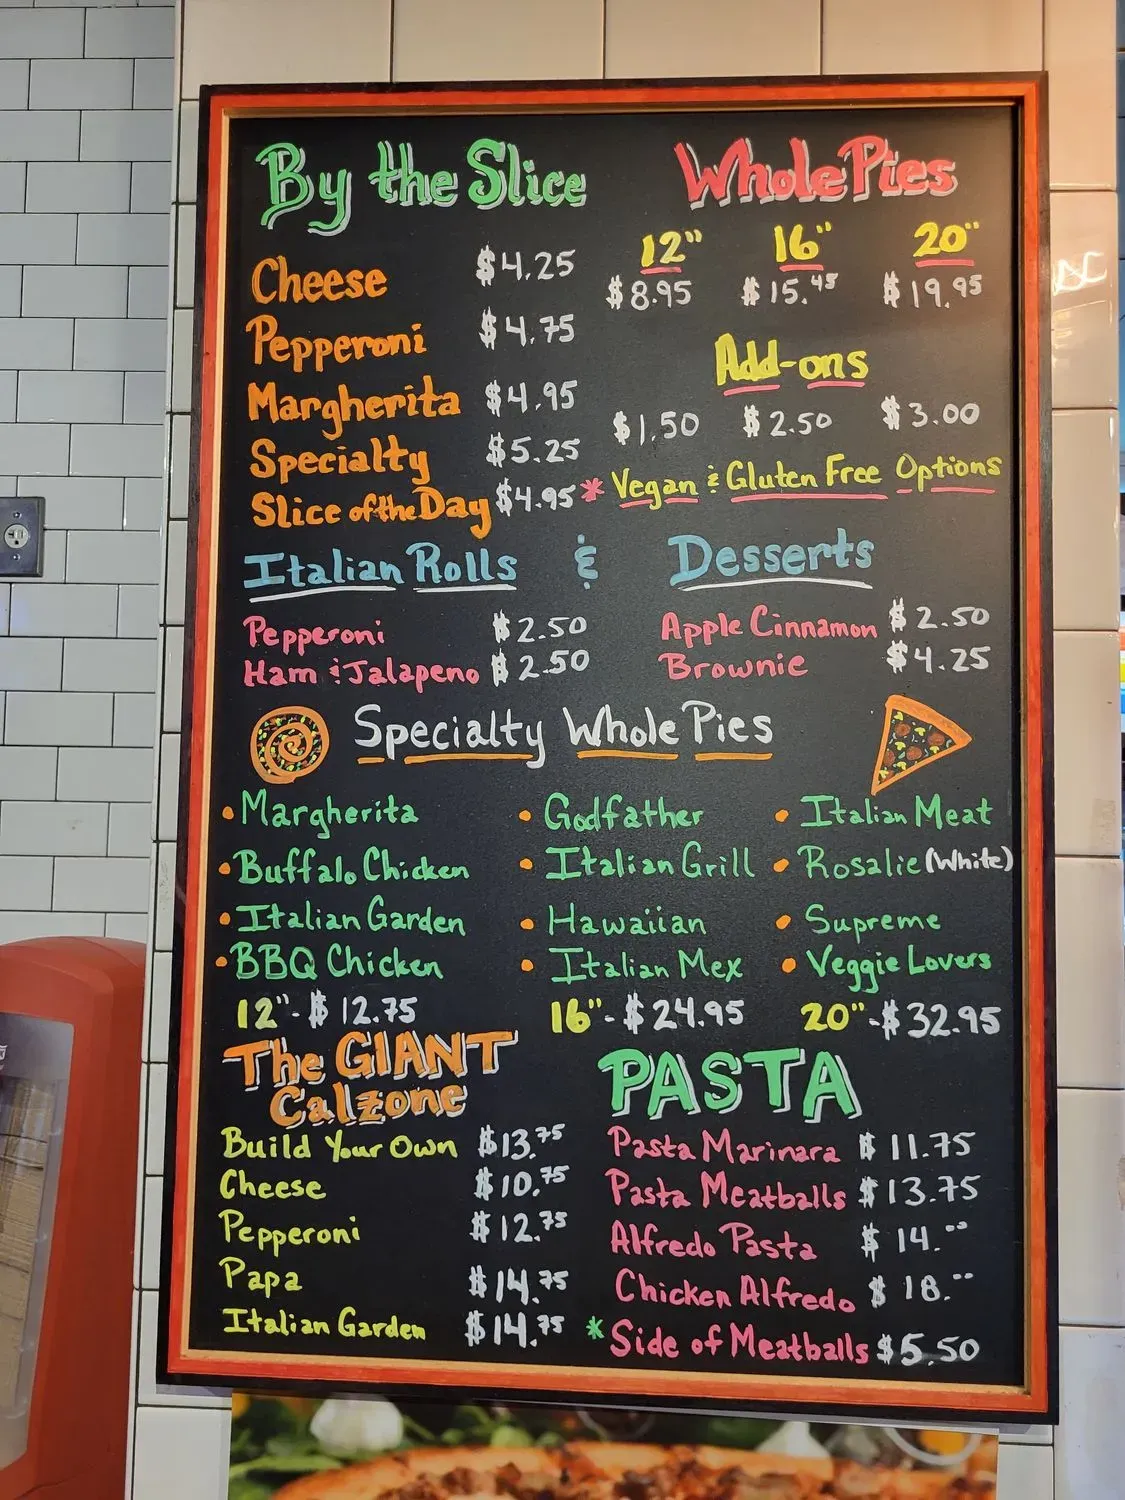 By the Slice
Cheese $4.25
Pepperoni $4.75
Margherita $4.95
Specialty $5.25
Slice of the Day $4.95
Whole Pies
12" 16" 20"
$8.95 $15.45 $19.95
Add-ons
$1.50 $2.50 $3.00
* Vegan & Gluten Free Options
Italian Rolls & Desserts
Pepperoni $2.50
Ham & Jalapeno $2.50
Apple Cinnamon $2.50
Brownie $4.25
Specialty Whole Pies
• Margherita • Godfather • Italian Meat
• Buffalo Chicken • Italian Grill • Rosalie (White)
• Italian Garden • Hawaiian • Supreme
• BBQ Chicken • Italian Mex • Veggie Lovers
12"-$12.75 16"-$24.95 20"-$32.95
The GIANT
Calzone
Build Your Own $13.75
Cheese $10.75
Pepperoni $12.75
Papa $14.75
Italian Garden $14.75
PASTA
Pasta Marinara $11.75
Pasta Meatballs $13.75
Alfredo Pasta $14.00
Chicken Alfredo $18.--
* Side of Meatballs $5.50